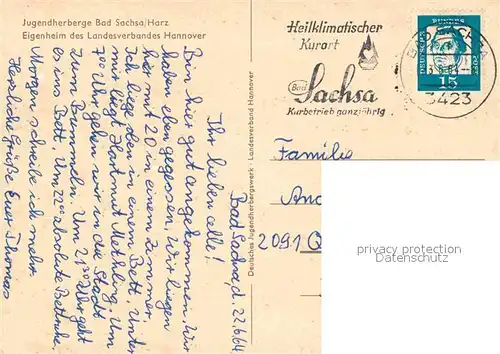 Jugendherberge Bad Sachsa/Harz
Eigenheim des Landesverbandes Hannover
Bad Sachsa, d. 22.6.64
Ihr lieben alle!
Bin hier gut angekommen. Wir
haben eben gegessen. Wir liegen
hier mit 20 in einem Zimmer.
Ich liege oben in einem Bett. Unter
mir liegt Hartmut Methling. Um
7⁰⁰ Uhr gehen wir in die Stadt
zum Bummeln. Um 21³⁰ Uhr geht
es ins Bett. Um 22⁰⁰ absolute Bettruhe.
Morgen schreibe ich mehr.
Herzliche Grüße Euer Thomas
Deutsches Jugendherbergswerk · Landesverband Hannover
Heilklimatischer
Kurort
Bad
Sachsa
Kurbetrieb ganzjährig
BAD SACHSA
3423
DEUTSCHE
BUNDES
POST
15
Familie
2091
privacy protection
Datenschutz